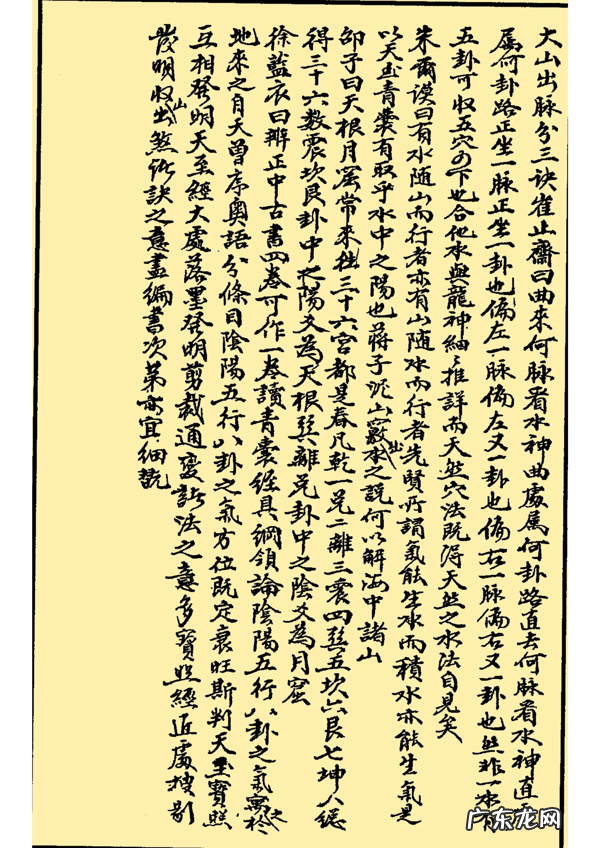 大山出脉分三诀崔止齋曰曲來何脉看水神曲處属何卦路直去何脉看水神直
属何卦路正坐一脉正坐一卦也偏左一脉偏左又一卦也偏右一脉偏右又一卦也然非一水有
五卦可收五穴可下也合他水與龍神細〻推詳而天然穴法既得天然之水法自見矣
朱爾谟曰有水随山而行者亦有山随水而行者先賢所謂氣能生水而積水亦能生氣是
以天玉青囊有取乎水中之陽也蔣子泥山出竅水之說何以解海中諸山
邵子曰天根月窟常來往三十六宮都是春凡乾一兌二離三震四巽五坎六艮七坤八總
得三十六數震坎艮卦中之陽爻為天根巽離兌卦中之陰爻為月窟
徐藍衣曰辨正中古書四卷可作一卷讀青囊經具綱領論陰陽五行八卦之氣之寓於
地來之自天曾序奥語分條目陰陽五行八卦之氣方位既定衰旺斯判天玉寳照
互相發明天玉經大處落墨發明剪裁通變諸法之意多寳照經近處搜剔
發明收山出煞諸訣之意盡編書次第亦宜細翫
广东龙网